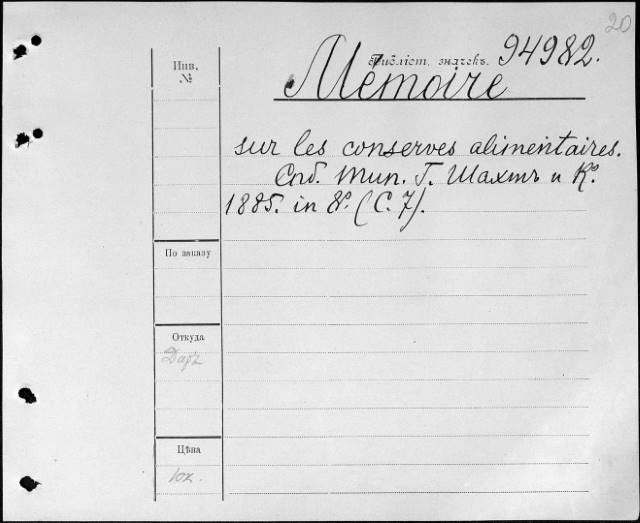 20
Инв.
№
Библіот. значекъ. 94982.
Mémoire
sur les conserves alimentaires.
Спб. Тип. Г. Шахтъ и Ко.
1885. in 8º. (С. 7).
По заказу
Откуда
Даръ
Цѣна
10к.